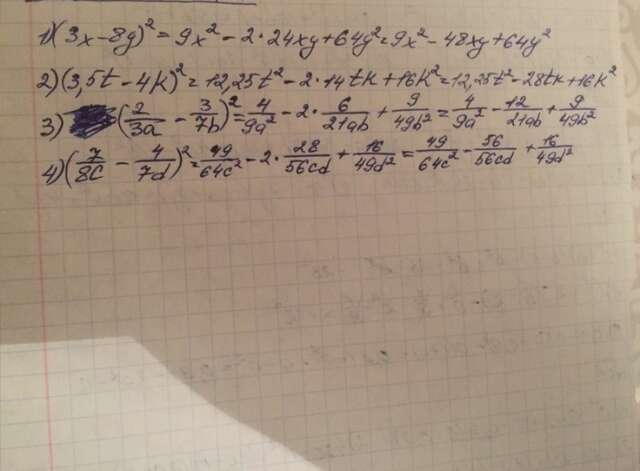 1) (3x - 8y)² = 9x² - 2·24xy + 64y² = 9x² - 48xy + 64y²
2) (3,5t - 4k)² = 12,25t² - 2·14tk + 16k² = 12,25t² - 28tk + 16k²
3) (2/3a - 3/7b)² = 4/9a² - 2·6/21ab + 9/49b² = 4/9a² - 12/21ab + 9/49b²
4) (7/8c - 4/7d)² = 49/64c² - 2·28/56cd + 16/49d² = 49/64c² - 56/56cd + 16/49d²